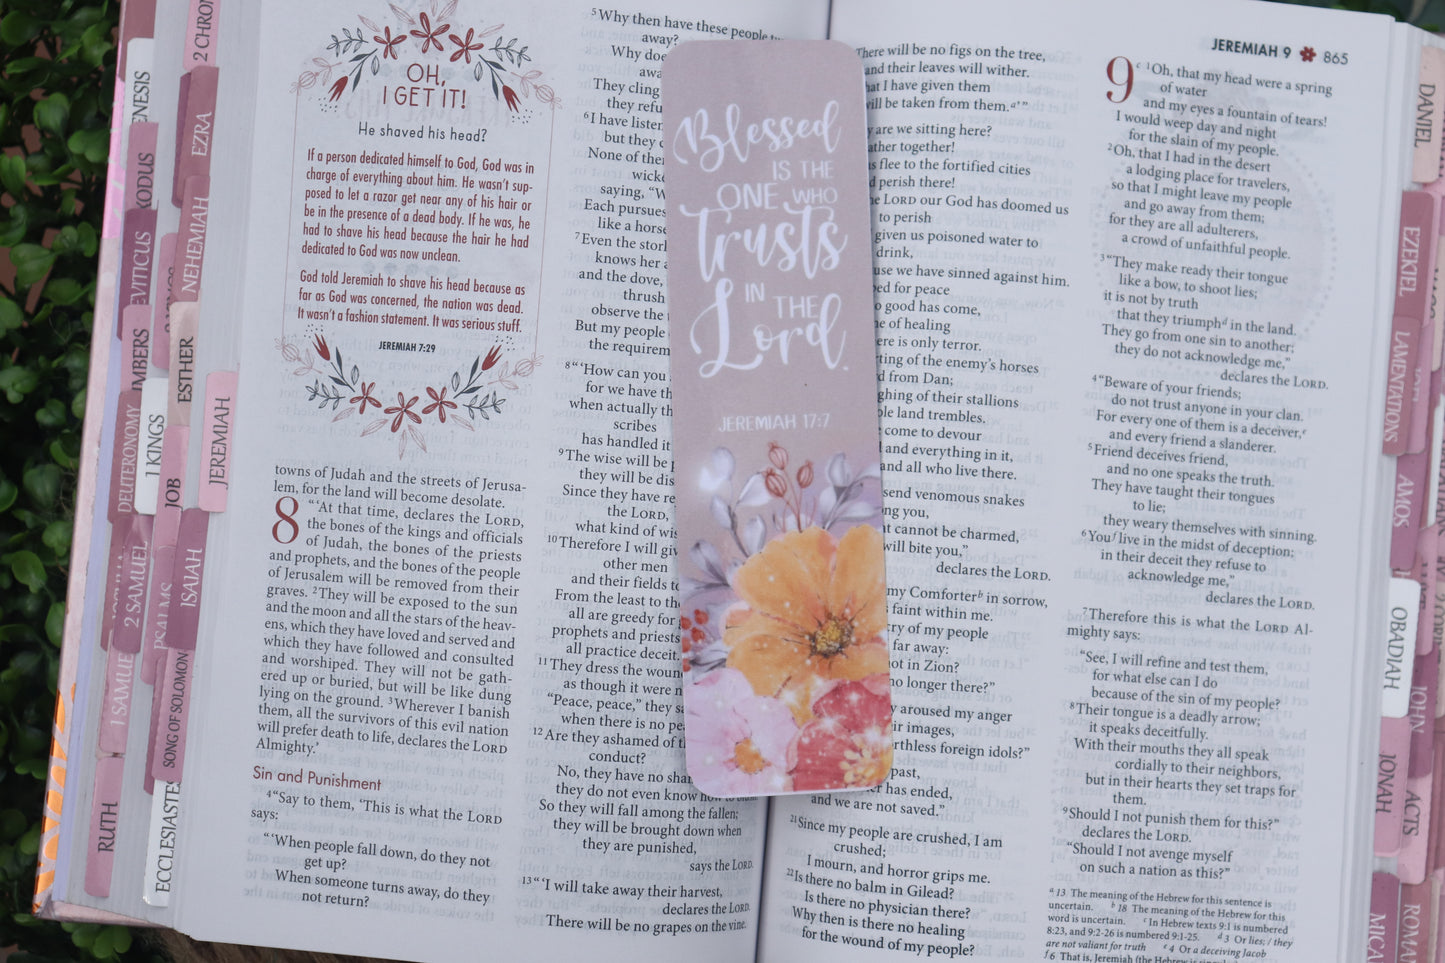 2 CHRON
ENESIS
EZRA
XODUS
NEHEMIAH
EVITICUS
MBERS
ESTHER
DEUTERONOMY
1 KINGS
JEREMIAH
JOB
2 SAMUEL
PSALMS
ISAIAH
1 SAMUE
SONG OF SOLOMON
RUTH
ECCLESIASTES
OH,
I GET IT!
He shaved his head?
If a person dedicated himself to God, God was in
charge of everything about him. He wasn't sup-
posed to let a razor get near any of his hair or
be in the presence of a dead body. If he was, he
had to shave his head because the hair he had
dedicated to God was now unclean.
God told Jeremiah to shave his head because as
far as God was concerned, the nation was dead.
It wasn't a fashion statement. It was serious stuff.
JEREMIAH 7:29
towns of Judah and the streets of Jerusa-
lem, for the land will become desolate.
8 "'At that time, declares the LORD,
the bones of the kings and officials
of Judah, the bones of the priests
and prophets, and the bones of the people
of Jerusalem will be removed from their
graves. 2They will be exposed to the sun
and the moon and all the stars of the heav-
ens, which they have loved and served and
which they have followed and consulted
and worshiped. They will not be gath-
ered up or buried, but will be like dung
lying on the ground. 3Wherever I banish
them, all the survivors of this evil nation
will prefer death to life, declares the LORD
Almighty.'
Sin and Punishment
4"Say to them, 'This is what the LORD
says:
"'When people fall down, do they not
get up?
When someone turns away, do they
not return?
5Why then have these people
away?
Why doe
awa
They cling
they refu
6I have listen
but they d
None of the
wicke
saying, "W
Each pursues
like a horse
7Even the stor
knows her
and the dove,
thrush
observe the
But my people
the requirem
8"'How can you
for we have th
when actually th
scribes
has handled it
9The wise will be
they will be dis
Since they have re
the LORD,
what kind of wis
10Therefore I will giv
other men
and their fields to
From the least to the
all are greedy for
prophets and priests
all practice deceit.
11They dress the woun
as though it were n
"Peace, peace," they sa
when there is no pe
12Are they ashamed of t
conduct?
No, they have no sha
they do not even know how to blush.
So they will fall among the fallen;
they will be brought down when
they are punished,
says the LORD.
13"'I will take away their harvest,
declares the LORD.
There will be no grapes on the vine.
Blessed
IS THE
ONE WHO
Trusts
IN THE
Lord.
JEREMIAH 17:7
There will be no figs on the tree,
and their leaves will wither.
hat I have given them
will be taken from them.a'"
y are we sitting here?
ather together!
s flee to the fortified cities
d perish there!
e LORD our God has doomed us
to perish
given us poisoned water to
drink,
use we have sinned against him.
ped for peace
o good has come,
e of healing
ere is only terror.
rting of the enemy's horses
d from Dan;
ghing of their stallions
ole land trembles.
come to devour
and everything in it,
and all who live there.
send venomous snakes
ng you,
t cannot be charmed,
will bite you,"
declares the LORD.
my Comforterb in sorrow,
faint within me.
ry of my people
far away:
not in Zion?
no longer there?"
y aroused my anger
ir images,
rthless foreign idols?"
past,
er has ended,
and we are not saved."
21Since my people are crushed, I am
crushed;
I mourn, and horror grips me.
22Is there no balm in Gilead?
Is there no physician there?
Why then is there no healing
for the wound of my people?
JEREMIAH 9 865
9 c 1Oh, that my head were a spring
of water
and my eyes a fountain of tears!
I would weep day and night
for the slain of my people.
2Oh, that I had in the desert
a lodging place for travelers,
so that I might leave my people
and go away from them;
for they are all adulterers,
a crowd of unfaithful people.
3"They make ready their tongue
like a bow, to shoot lies;
it is not by truth
that they triumphd in the land.
They go from one sin to another;
they do not acknowledge me,"
declares the LORD.
4"Beware of your friends;
do not trust anyone in your clan.
For every one of them is a deceiver,e
and every friend a slanderer.
5Friend deceives friend,
and no one speaks the truth.
They have taught their tongues
to lie;
they weary themselves with sinning.
6Youf live in the midst of deception;
in their deceit they refuse to
acknowledge me,"
declares the LORD.
7Therefore this is what the LORD Al-
mighty says:
"See, I will refine and test them,
for what else can I do
because of the sin of my people?
8Their tongue is a deadly arrow;
it speaks deceitfully.
With their mouths they all speak
cordially to their neighbors,
but in their hearts they set traps for
them.
9Should I not punish them for this?"
declares the LORD.
"Should I not avenge myself
on such a nation as this?"
a 13 The meaning of the Hebrew for this sentence is
uncertain. b 18 The meaning of the Hebrew for this
word is uncertain. c In Hebrew texts 9:1 is numbered
8:23, and 9:2-26 is numbered 9:1-25. d 3 Or lies; / they
are not valiant for truth e 4 Or a deceiving Jacob
f 6 That is, Jeremiah (the Hebrew is
DANIEL
EZEKIEL
LAMENTATIONS
AMOS
OBADIAH
JOHN
JONAH
ACTS
MICA
ROMAN